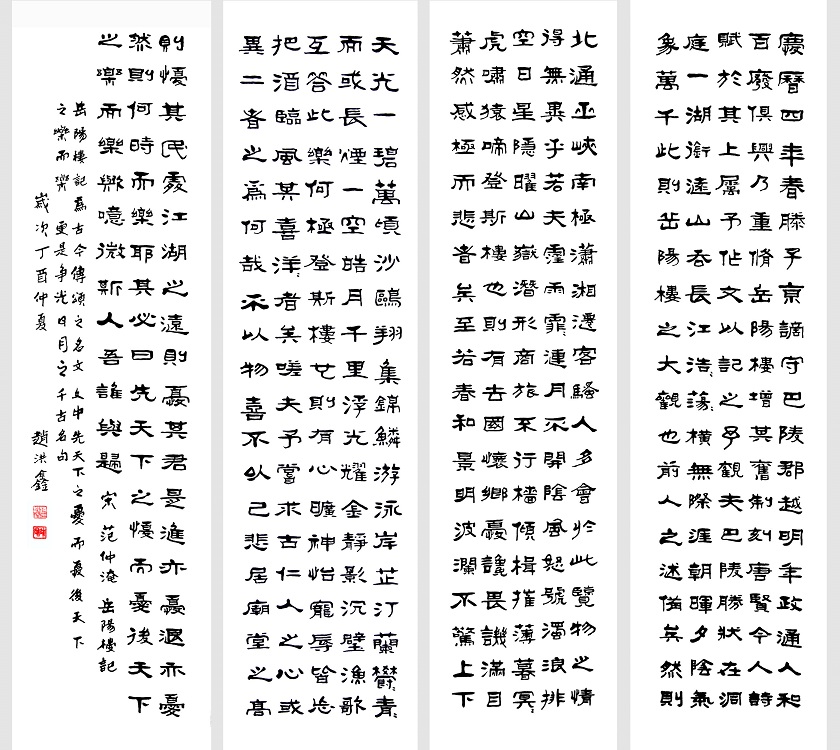 慶曆四年春滕子京謫守巴陵郡越明年政通人和
百廢俱興乃重脩岳陽樓增其舊制刻唐賢今人詩
賦於其上屬予作文以記之予觀夫巴陵勝狀在洞
庭一湖銜遠山吞長江浩浩蕩蕩橫無際涯朝暉夕陰氣
象萬千此則岳陽樓之大觀也前人之述備矣然則
北通巫峽南極瀟湘遷客騷人多會於此覽物之情
得無異乎若夫霪雨霏霏連月不開陰風怒號濁浪排
空日星隱曜山嶽潛形商旅不行檣傾楫摧薄暮冥冥
虎嘯猿啼登斯樓也則有去國懷鄉憂讒畏譏滿目
蕭然感極而悲者矣至若春和景明波瀾不驚上下
天光一碧萬頃沙鷗翔集錦鱗游泳岸芷汀蘭鬱鬱青青
而或長煙一空皓月千里浮光耀金靜影沉璧漁歌
互答此樂何極登斯樓也則有心曠神怡寵辱皆忘
把酒臨風其喜洋洋者矣嗟夫予嘗求古仁人之心或
異二者之為何哉不以物喜不以己悲居廟堂之高
則憂其民處江湖之遠則憂其君是進亦憂退亦憂
然則何時而樂耶其必曰先天下之憂而憂後天下
之樂而樂歟噫微斯人吾誰與歸 宋范仲淹岳陽樓記
岳陽樓記為古今傳頌之名文文中先天下之憂而憂後天下
之樂而樂更是爭光日月之千古名句
歲次丁酉仲夏 趙洪鑫